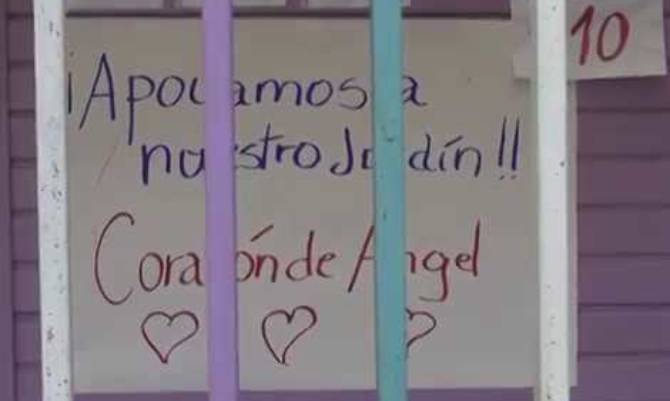 10
¡Apoyamos a
nuestro Jardín!!
Corazón de Angel